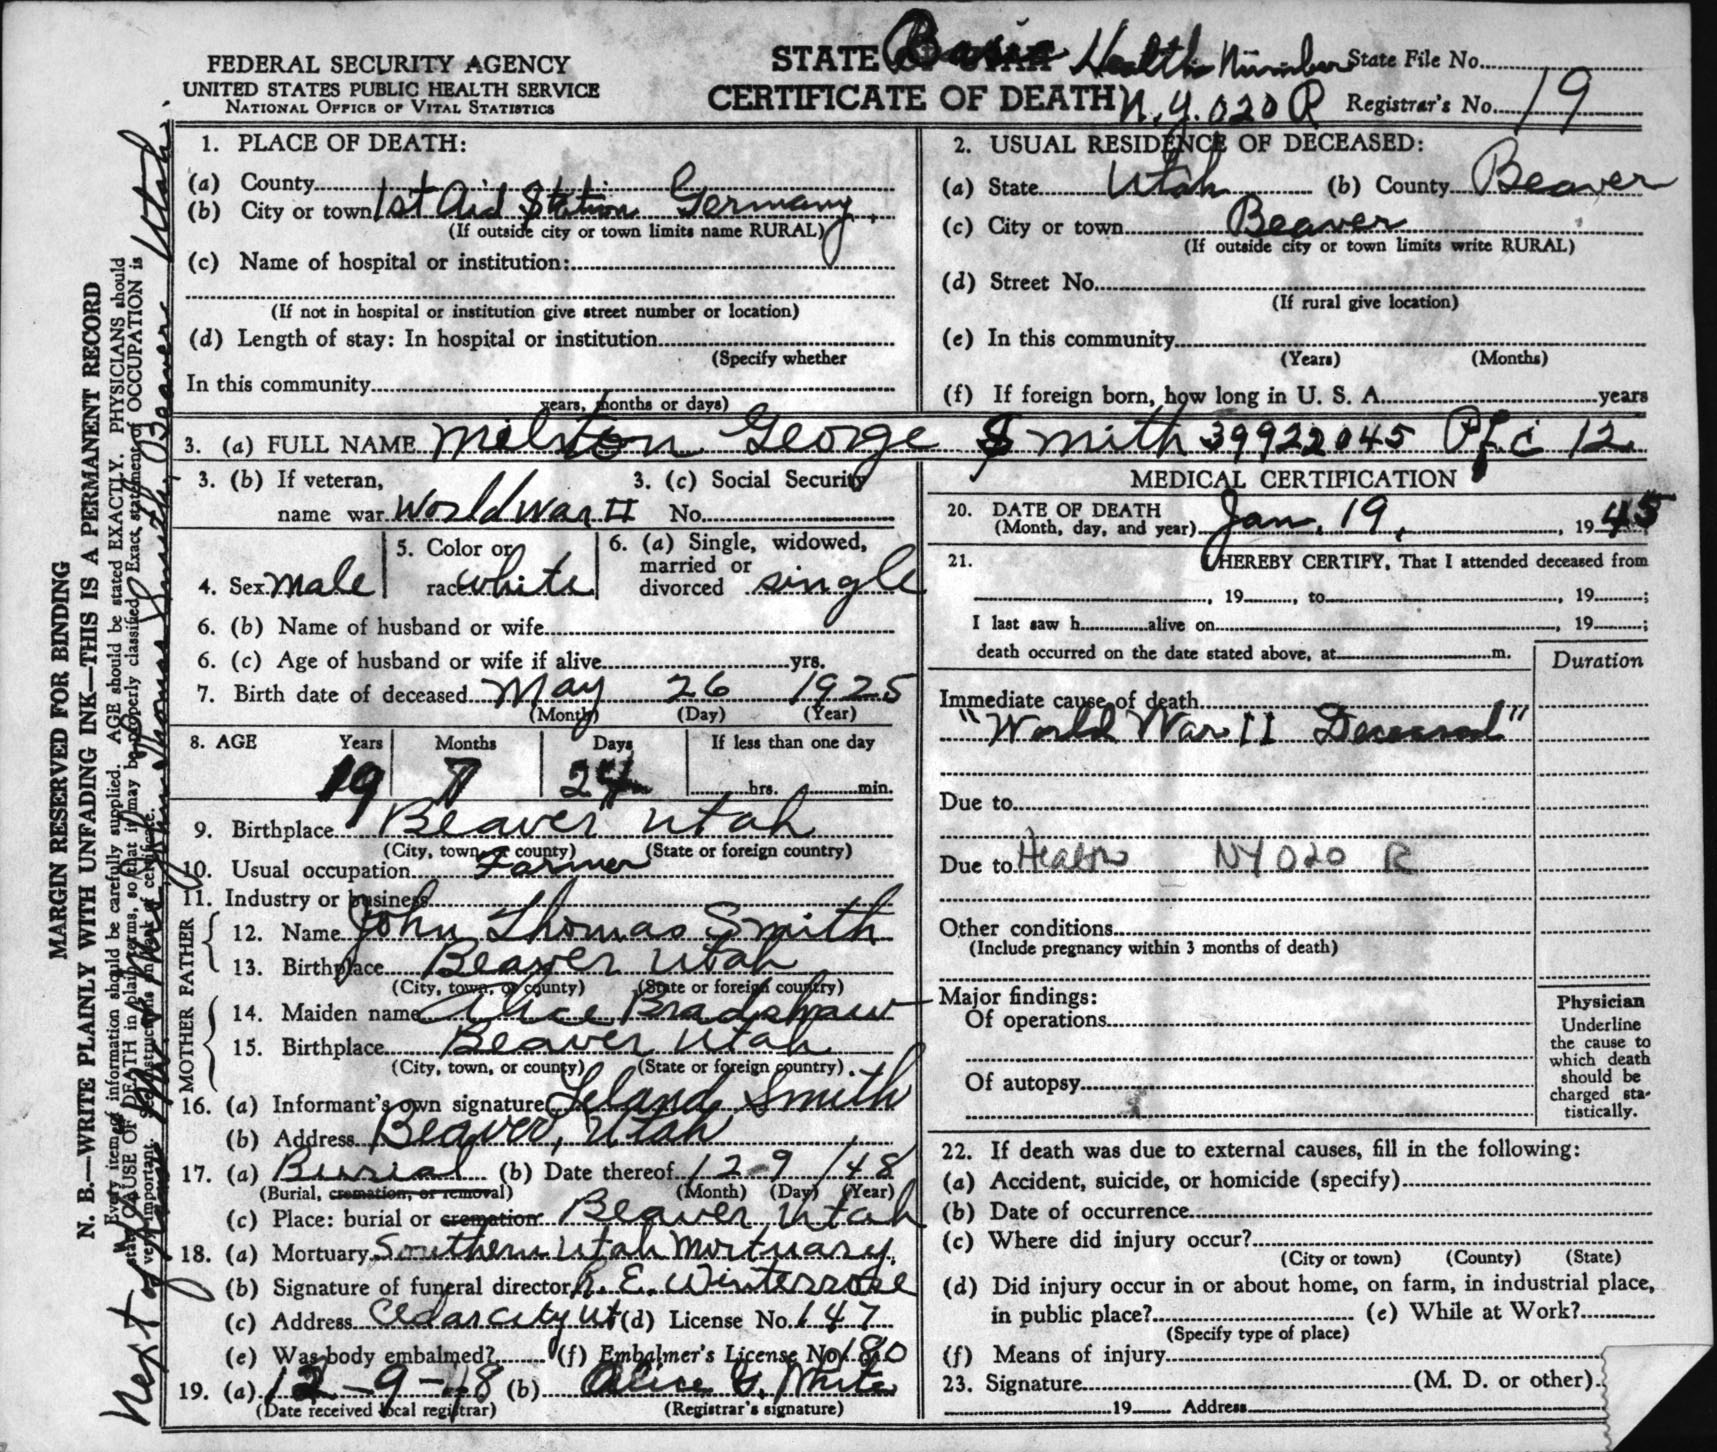 FEDERAL SECURITY AGENCY
UNITED STATES PUBLIC HEALTH SERVICE
NATIONAL OFFICE OF VITAL STATISTICS
STATE OF UTAH Health Number
CERTIFICATE OF DEATH N.Y. 020 R
State File No.
Registrar's No. 19
MARGIN RESERVED FOR BINDING
N. B.—WRITE PLAINLY WITH UNFADING INK—THIS IS A PERMANENT RECORD
Every item of information should be carefully supplied. AGE should be stated EXACTLY. PHYSICIANS should
state CAUSE OF DEATH in plain terms, so that it may be properly classified. Exact statement of OCCUPATION is
very important.
Next of Thomas Smith, Beaver Utah
1. PLACE OF DEATH:
(a) County
(b) City or town 1st Aid Station Germany.
(If outside city or town limits name RURAL)
(c) Name of hospital or institution:
(If not in hospital or institution give street number or location)
(d) Length of stay: In hospital or institution
(Specify whether
In this community
years, months or days)
2. USUAL RESIDENCE OF DECEASED:
(a) State Utah (b) County Beaver
(c) City or town Beaver
(If outside city or town limits write RURAL)
(d) Street No.
(If rural give location)
(e) In this community
(Years) (Months)
(f) If foreign born, how long in U. S. A. years
3. (a) FULL NAME Melston George Smith 39922045 Pfc 12
3. (b) If veteran, 3. (c) Social Security
name war World War II No.
4. Sex Male 5. Color or race White 6. (a) Single, widowed, married or divorced single
6. (b) Name of husband or wife
6. (c) Age of husband or wife if alive yrs.
7. Birth date of deceased May 26 1925
(Month) (Day) (Year)
8. AGE Years Months Days If less than one day
19 7 24 hrs. min.
9. Birthplace Beaver Utah
(City, town, or county) (State or foreign country)
10. Usual occupation Farmer
11. Industry or business
FATHER
12. Name John Thomas Smith
13. Birthplace Beaver Utah
(City, town, or county) (State or foreign country)
MOTHER
14. Maiden name Alice Bradshaw
15. Birthplace Beaver Utah
(City, town, or county) (State or foreign country)
16. (a) Informant's own signature Leland Smith
(b) Address Beaver, Utah
17. (a) Burial (b) Date thereof 12 - 9 / 48
(Burial, cremation, or removal) (Month) (Day) (Year)
(c) Place: burial or cremation Beaver Utah
18. (a) Mortuary Southern Utah Mortuary.
(b) Signature of funeral director R. E. Winterrose
(c) Address Cedar City Ut (d) License No. 147
(e) Was body embalmed? (f) Embalmer's License No. 180
19. (a) 12-9-48 (b) Alice G. White
(Date received local registrar) (Registrar's signature)
MEDICAL CERTIFICATION
20. DATE OF DEATH
(Month, day, and year) Jan. 19, , 19 45
21. I HEREBY CERTIFY, That I attended deceased from
, 19 , to , 19 ;
I last saw h alive on , 19 ;
death occurred on the date stated above, at m.
Duration
Immediate cause of death
"World War II Deceased"
Due to
Due to Health NY 020 R
Other conditions
(Include pregnancy within 3 months of death)
Major findings:
Of operations
Of autopsy
Physician
Underline
the cause to
which death
should be
charged sta-
tistically.
22. If death was due to external causes, fill in the following:
(a) Accident, suicide, or homicide (specify)
(b) Date of occurrence
(c) Where did injury occur?
(City or town) (County) (State)
(d) Did injury occur in or about home, on farm, in industrial place,
in public place? (e) While at Work?
(Specify type of place)
(f) Means of injury
23. Signature (M. D. or other).
19 Address